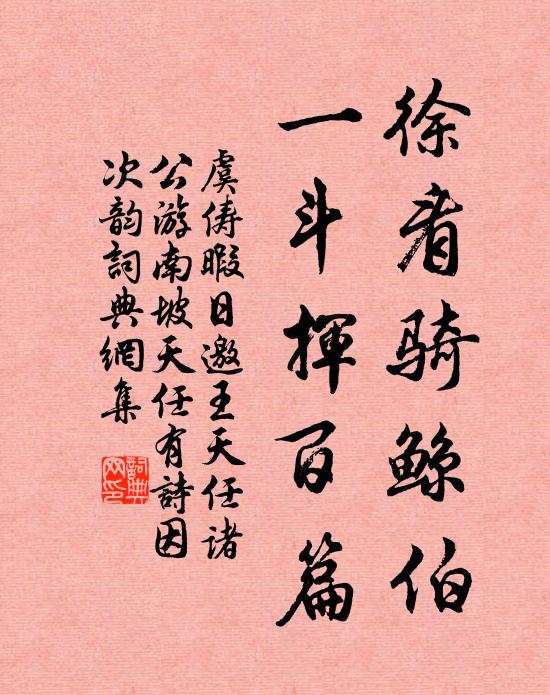 徐看骑鲸伯
一斗揮百篇
虞俦暇日邀王天任诸
公游南坡天任有詩因
次韵詞典網集
詞典网印